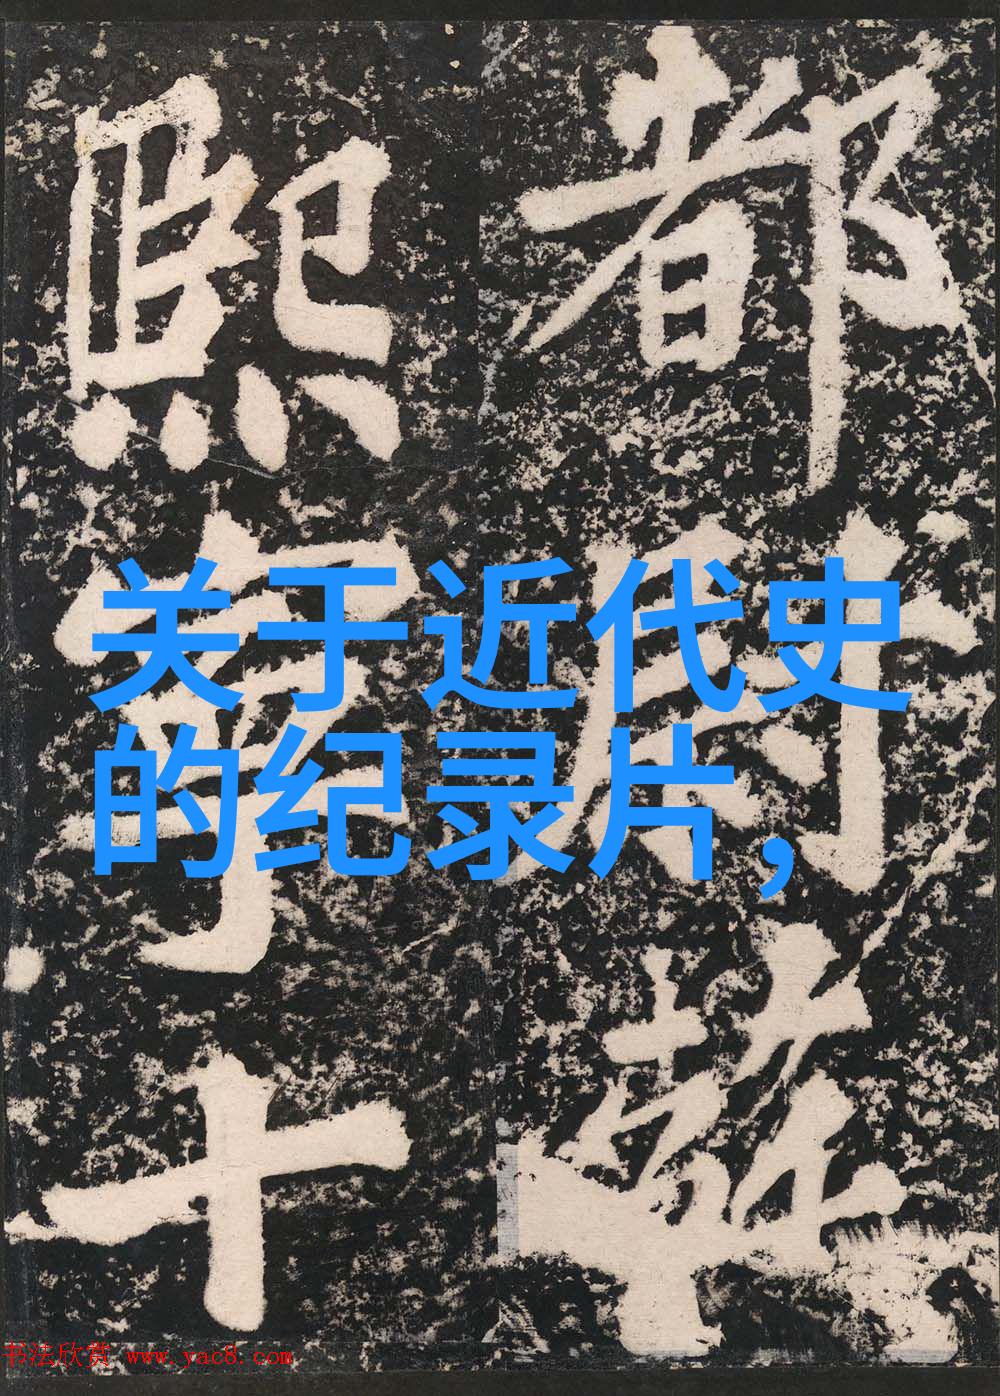 都尉蘇
熙寧十
关于近代史
的纪录片，
书法欣赏 www.yac8.com